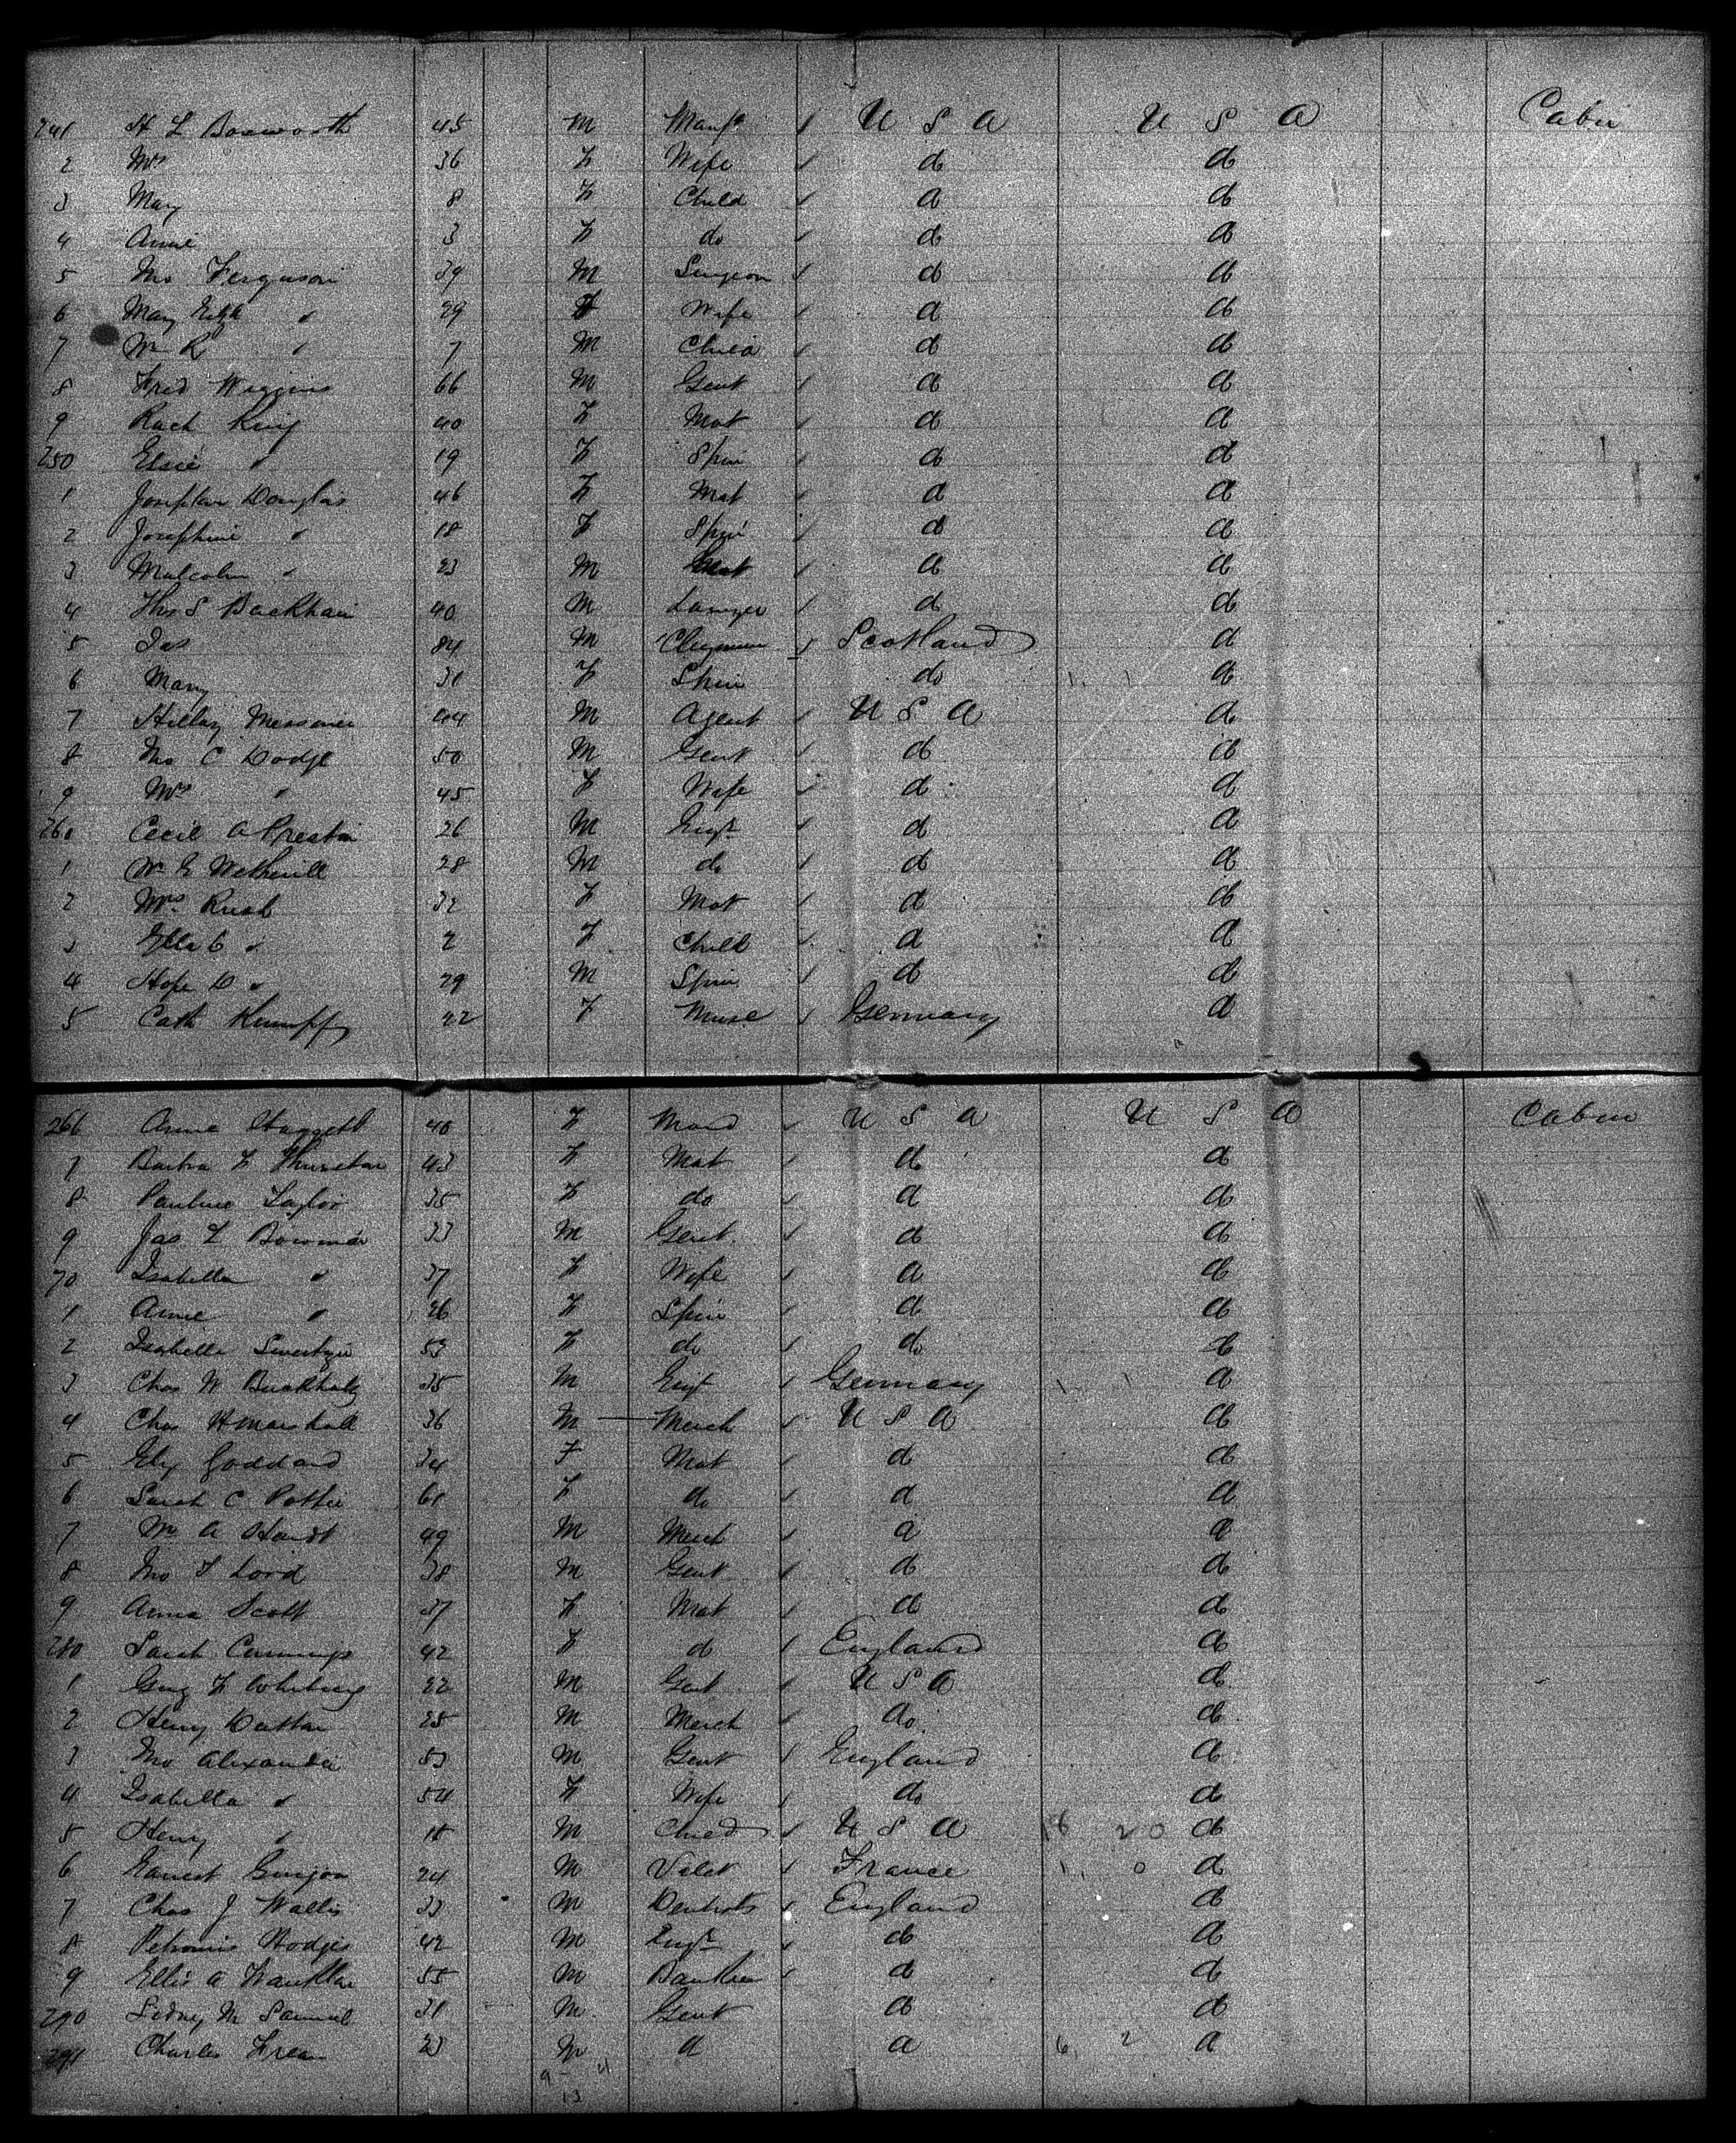 241 H L Bosworth 45 M Manfr U S A U S A Cabin
2 Mrs 36 F Wife do do
3 Mary 8 F Child do do
4 Annie 3 F do do do
5 Jno Ferguson 39 M Surgeon do do
6 Mary Eliz " 29 F Wife do do
7 Wm R " 7 M Child do do
8 Fred Wiggins 66 M Gent do do
9 Rach King 40 F Mat do do
250 Elsie " 19 F Spin do do
1 Douglas 46 F Mat do do
2 Josephine " 18 F Spin do do
3 Malcolm " 23 M do do
4 Ths S 40 M Lawyer do do
5 Jas 84 M Scotland do
6 Mary 31 F Spin do do
7 44 M Agent U S A do
8 Jno C Dodge 50 M Gent do do
9 Mrs " 45 F Wife do do
260 Cecil A Preston 26 M Engr do do
1 Wm E Wetherill 28 M do do do
2 Mrs Rush 32 F Mat do do
3 Ella C " 2 F Child do do
4 Hope D " 29 M Spin do do
5 Cath Krumpf 22 F Nurse Germany do
266 Anne 40 F Maid U S A U S A Cabin
7 Barbra F Thurston 43 F Mat do do
8 Pauline Taylor 35 F do do do
9 Jas F Bowman 33 M Gent do do
70 Isabella " 37 F Wife do do
1 Annie " 26 F Spin do do
2 Isabella 53 F do do do
3 Chas W Buckholz 35 M Engr Germany do
4 Chas H Marshall 36 M Merch U S A do
5 Eliz Goddard 34 F Mat do do
6 Sarah C Potter 61 F do do do
7 Wm A 49 M Merch do do
8 Jno T Lord 38 M Gent do do
9 Anna Scott 37 F Mat do do
280 Sarah Cummings 42 F do England do
1 Geug F Whitney 22 M Gent U S A do
2 Henry Dutton 25 M Merch do do
3 Jno Alexander 53 M Gent England do
4 Isabella " 54 F Wife do do
5 Henry " 18 M Child U S A 6 20 do
6 Earnest Gurjon 24 M Valet France 0 do
7 Chas J Wallis 33 M Dentists England do
8 Hodges 42 M Engr do do
9 Ellis A Franklin 55 M Banker do do
290 Sidney M Samuel 31 M Gent do do
291 Charles Frean 23 M do do 6 2 do
9 - 4
13